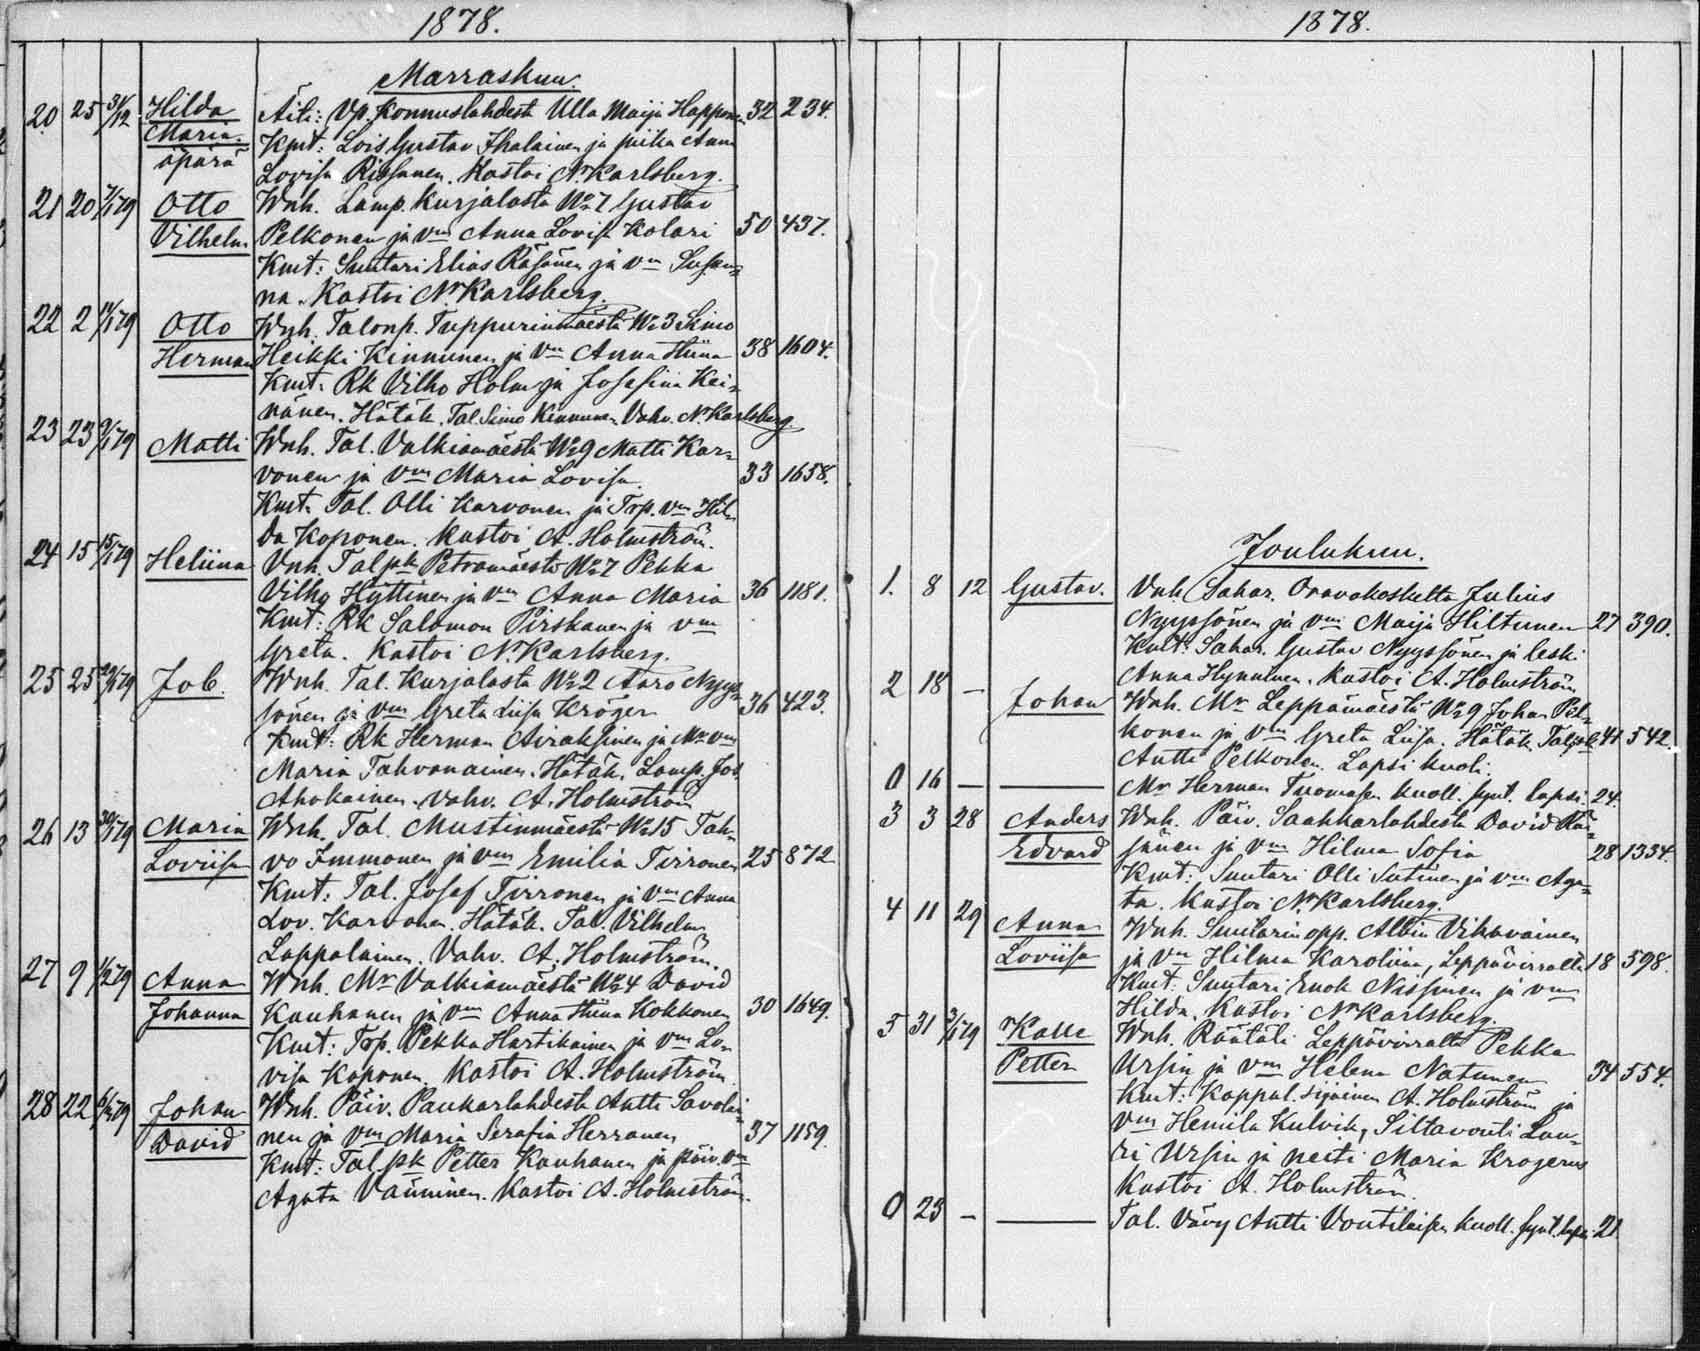 1878.
Marraskuu.
20 25 31/12 Hilda Äiti: Vp. Konnuslahdesta Ulla Maija Happonen 32 234.
Maria Kmt: Lois Gustav Ihalainen ja piika Anna
äpärä Lovisa Rissanen. Kastoi N. Karlsberg.
21 20 7/1 79 Otto Wnh. Lamp. Kurjalasta No 7 Gustav
Vilhelm Pelkonen ja vm Anna Lovisa Kolari 50 437.
Kmt: Suutari Elias Räsänen ja vm Susan=
na. Kastoi N. Karlsberg.
22 2 11/1 79 Otto Wnh. Talonp. Tuppurinmäestä No 3 Simo
Herman Heikki Kinnunen ja vm Anna Stiina 38 1604.
Kmt: Rk Vilho Holm ja Josefina Kei=
nänen. Hätäk. Tal. Simo Kinnunen Vahv. N. Karlsberg
23 23 9/1 79 Matti Wnh. Tal. Valkiamäestä No 9 Matti Kar=
vonen ja vm Maria Lovisa. 33 1658.
Kmt: Tal. Olli Karvonen ja Trp. vm Hil=
da Koponen. Kastoi A. Holmström.
24 15 15/1 79 Heliina Vnh. Tal pk Petromäestä No 7 Pekka
Vilho Hyttinen ja vm Anna Maria 36 1181.
Kmt: Rk Salomon Pirskanen ja vm
Greta. Kastoi N. Karlsberg.
25 25 /1 79 Job. Wnh. Tal. Kurjalasta No 2 Aaro Nyys=
sönen ja vm Greta Liisa Kröger 36 423.
Kmt: Rk Herman Airaksinen ja Mr vm
Maria Tahvanainen. Hätäk. Lamp. Jos.
Ahokainen. Vahv. A. Holmström
26 13 30/1 79 Maria Wnh. Tal. Mustinmäestä No 15 Tah=
Loviisa vo Immonen ja vm Emilia Tirronen 25 872
Kmt: Tal. Josef Tirronen ja vm Anna
Lov. Karvonen. Hätäk. Tal. Vilhelm
Lappalainen. Vahv. A. Holmström.
27 9 1/2 79 Anna Wnh. Mr Valkiamäestä No 4 David
Johanna Kauhanen ja vm Anna Stiina Kokkonen 30 1649.
Kmt: Trp. Pekka Hartikainen ja vm Lo=
visa Koponen. Kastoi A. Holmström
28 22 6/2 79 Johan Wnh. Päiv. Paukarlahdesta Antti Savolai=
David nen ja vm Maria Serafia Herranen 37 1159.
Kmt: Tal. pk Petter Kauhanen ja päiv. vm
Agata Vänninen. Kastoi A. Holmström.
1878.
Joulukuu.
1. 8 12 Gustav. Vnh. Sahar. Oravakoskelta Julius
Nyyssönen ja vm Maija Hiltunen 27 390.
Kmt: Sahar. Gustav Nyyssönen ja leski
Anna Hynninen. Kastoi A. Holmström
2 18 — Johan Wnh. Mr Leppämäestä No 9 Johan Pel=
konen ja vm Greta Liisa. Hätäk. Talpk 41 542.
Antti Pelkonen. Lapsi kuoli.
0 16 — — Mr Herman Tuomasen kuoll. synt. lapsi 24.
3 3 28 Anders Wnh. Päiv. Saahkarlahdesta David Räi=
Edvard sänen ja vm Hilma Sofia 28 1334.
Kmt: Suutari Olli Sutinen ja vm Aga=
ta. Kastoi N. Karlsberg.
4 11 29 Anna Wnh. Suutarin opp. Albin Vihavainen
Loviisa ja vm Hilma Karoliina, Leppävirralta 18 598.
Kmt: Suutari Enok Nissinen ja vm
Hilda. Kastoi N. Karlsberg.
5 31 3/1 79 Kalle Wnh. Räätäli Leppävirralta Pekka
Petter Ursin ja vm Helena Natunen 34 554.
Kmt: Kappal. sijainen A. Holmström ja
vm Hemila Kulvik, Siltavouti Lau=
ri Ursin ja neiti Maria Krogerus
Kastoi A. Holmström.
0 23 — — Tal. Vävy Antti Voutilaisen kuoll. synt. lapsi 21